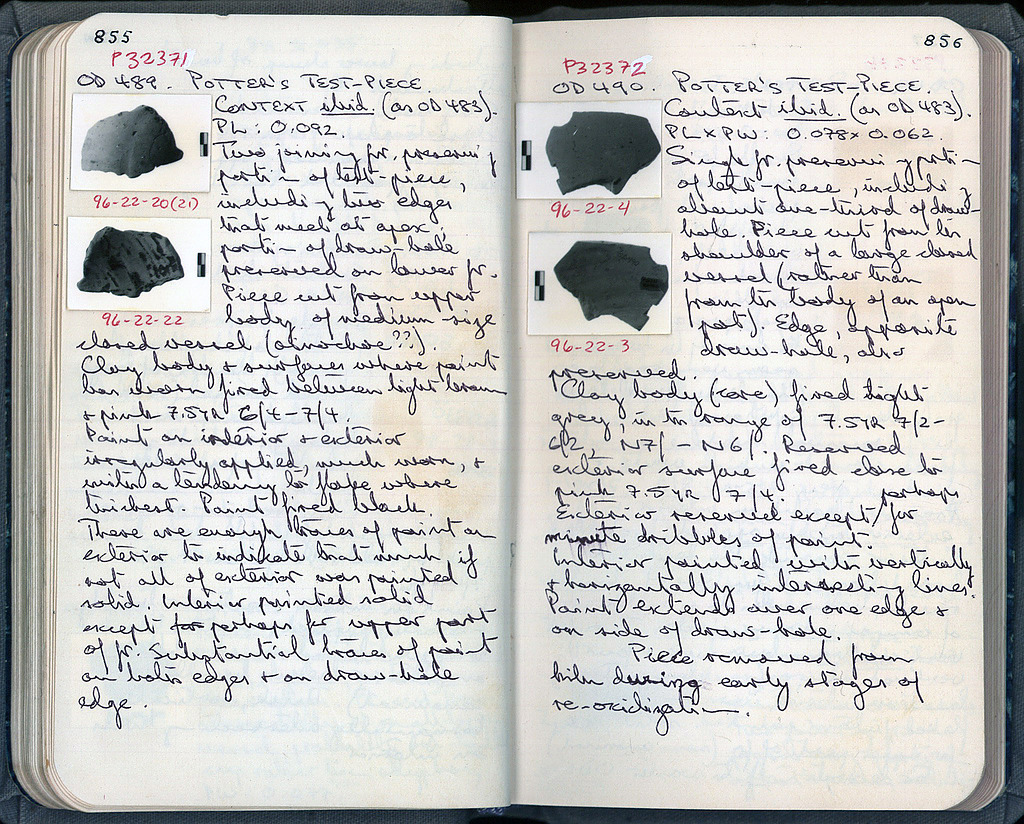 855
P32371
OD 489. POTTER'S TEST-PIECE.
CONTEXT ibid. (as OD 483).
PL: 0.092.
Two joining fr. preserving
portion of test-piece,
including two edges
that meet at apex;
portion of draw-hole
preserved on lower fr.
Piece cut from upper
body of medium-size
closed vessel (oinochoe??).
Clay body & surfaces where paint
has worn fired between light brown
& pink 7.5YR 6/4-7/4.
Paint on interior & exterior
irregularly applied, much worn, &
with a tendency to flake where
thickest. Paint fired black.
There are enough traces of paint on
exterior to indicate that much if
not all of exterior was painted
solid. Interior painted solid
except for perhaps for upper part
of fr. Substantial traces of paint
on both edges & on draw-hole
edge.
96-22-20(21)
96-22-22
856
P32372
OD 490. POTTER'S TEST-PIECE.
Context ibid. (as OD 483).
PL x PW: 0.078 x 0.062
Single fr. preserving portion
of test-piece, including
about one-third of draw-
hole. Piece cut from the
shoulder of a large closed
vessel (rather than
from the body of an open
pot). Edge, opposite
draw-hole, also
preserved.
Clay body (core) fired light
grey, in the range of 7.5YR 7/2-
6/2, N7/ - N6/. Reserved
exterior surface fired close to
pink 7.5YR 7/4.
Exterior reserved except / perhaps for
minute dribbles of paint.
Interior painted with vertically
& horizontally intersecting lines.
Paint extends over one edge &
on side of draw-hole.
Piece removed from
kiln during early stages of
re-oxidization.
96-22-4
96-22-3